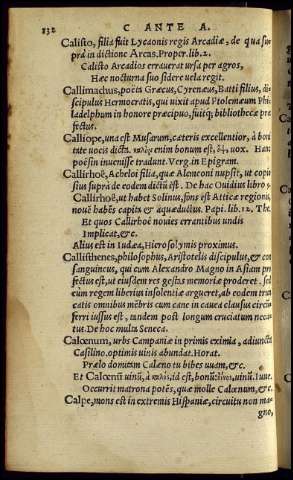 132 C ANTE A.
Calisto, filia fuit Lycaonis regis Arcadiæ, de qua su-
prà in dictione Arcas. Proper. lib. 2.
Calisto Arcadios errauerat ursa per agros,
Hæc nocturna suo sidere uela regit.
Callimachus, poëta Græcus, Cyrenæus, Batti filius, di-
scipulus Hermocratis, qui uixit apud Ptolemæum Phi-
ladelphum in honore præcipuo, fuitq; bibliothecæ præ-
fectus.
Calliope, una est Musarum, cæteris excellentior, à boni-
tate uocis dicta. καλὸν enim bonum est, ὂψ, uox. Hanc
poësin inuenisse tradunt. Verg. in Epigram.
Callirhoë, Acheloi filia, quæ Alcmeoni nupsit, ut copio-
sius suprà de eodem dictū est. De hac Ouidius libro 9.
Callirhoë, ut habet Solinus, fons est Atticæ regionis,
nouē habēs capita & aquæductus. Papi. lib. 12. The.
Et quos Callirhoë nouies errantibus undis
Implicat, &c.
Alius est in Iudæa, Hierosolymis proximus.
Callisthenes, philosophus, Aristotelis discipulus, & con-
sanguineus, qui cum Alexandro Magno in Asiam pro-
fectus est, ut eiusdem res gestas memoriæ proderet. sed
cùm regem liberius insolentiæ argueret, ab eodem trun-
catis omnibus mēbris cum cane in cauea clausus circūm-
ferri iussus est, tandem post longum cruciatum neca-
tus. De hoc multa Seneca.
Calœnum, urbs Campaniæ in primis eximia, adiuncta
Casilino. optimis uinis abundat. Horat.
Prælo domitam Caleno tu bibes uuam, &c.
Et Calœnū uinū, à καλὸς, id est, bonū: οἶνος, uinū. Iuue.
Occurrit matrona potēs, quæ molle Calœnum, &c.
Calpe, mons est in extremis Hispaniæ, circuitu non ma-
gno,